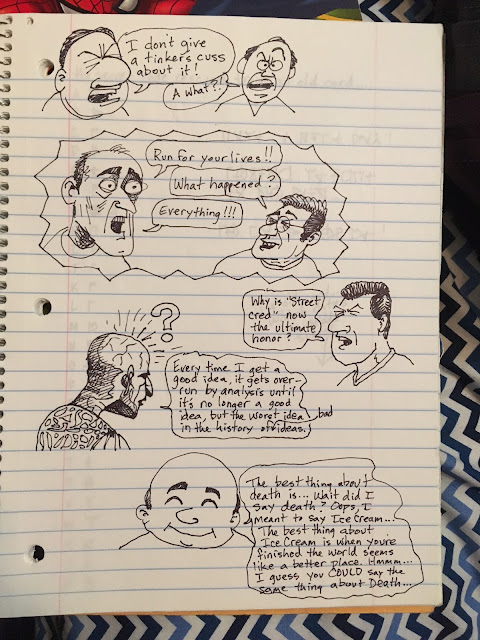 I don't give
a tinker's cuss
about it!
A what?!
Run for your lives!!
What happened?
Everything!!!
Why is "Street
cred" now
the ultimate
honor?
?
Every time I get a
good idea, it gets over-
run by analysis until
it's no longer a good
idea, but the worst idea bad
in the history of ideas.
The best thing about
death is... Wait did I
say death? Oops, I
meant to say Ice Cream...
The best thing about
Ice Cream is when you're
finished the world seems
like a better place. Hmmm...
I guess you COULD say the
same thing about Death...